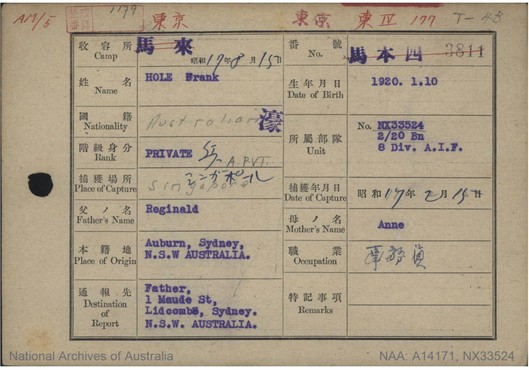 AM/5 1179 東京 東京 東Ⅳ 177 T-4B
收容所 Camp 馬來 昭和17年8月15日 番號 No. 馬本四 3811
姓名 Name HOLE Frank 生年月日 Date of Birth 1920. 1.10
國籍 Nationality Australian 濠 所屬部隊 Unit No. NX33524
2/20 Bn
8 Div. A.I.F.
階級身分 Rank PRIVATE 兵 A.PVT.
捕獲場所 Place of Capture シンガポール
Singapore 捕獲年月日 Date of Capture 昭和17年2月15日
父ノ名 Father's Name Reginald 母ノ名 Mother's Name Anne
本籍地 Place of Origin Auburn, Sydney,
N.S.W AUSTRALIA. 職業 Occupation 事務員
通報先 Destination of Report Father,
1 Maude St,
Lidcombe, Sydney.
N.S.W. AUSTRALIA. 特記事項 Remarks
National Archives of Australia NAA: A14171, NX33524